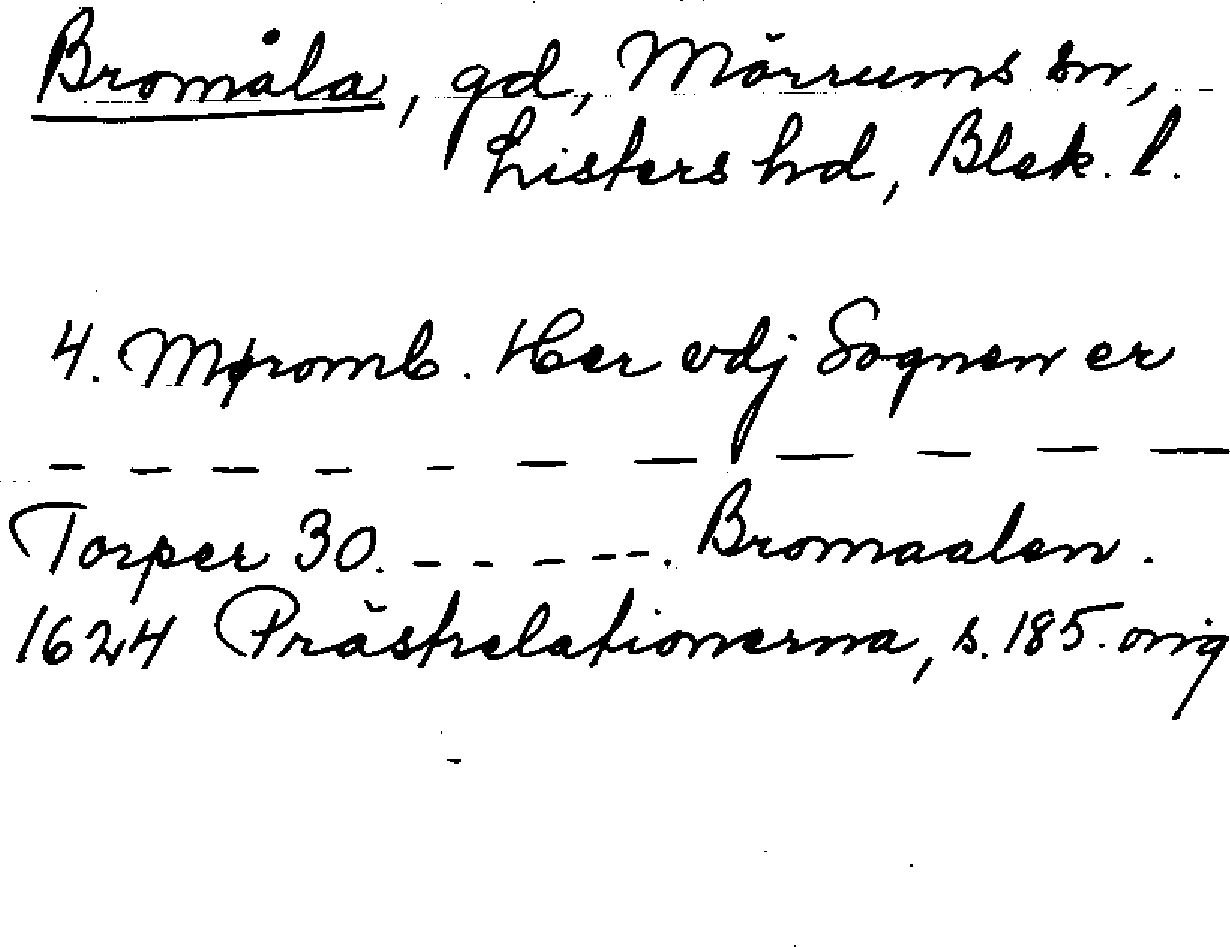 Bromåla, gd, Mörrums sn,
Listers hd, Blek. l.
4. Møromb. Her vdj Sognen er
— — — — — — — — — — —
Torper 30. - - - - - . Bromaalen.
1624 Prästrelationerna, s. 185. orig